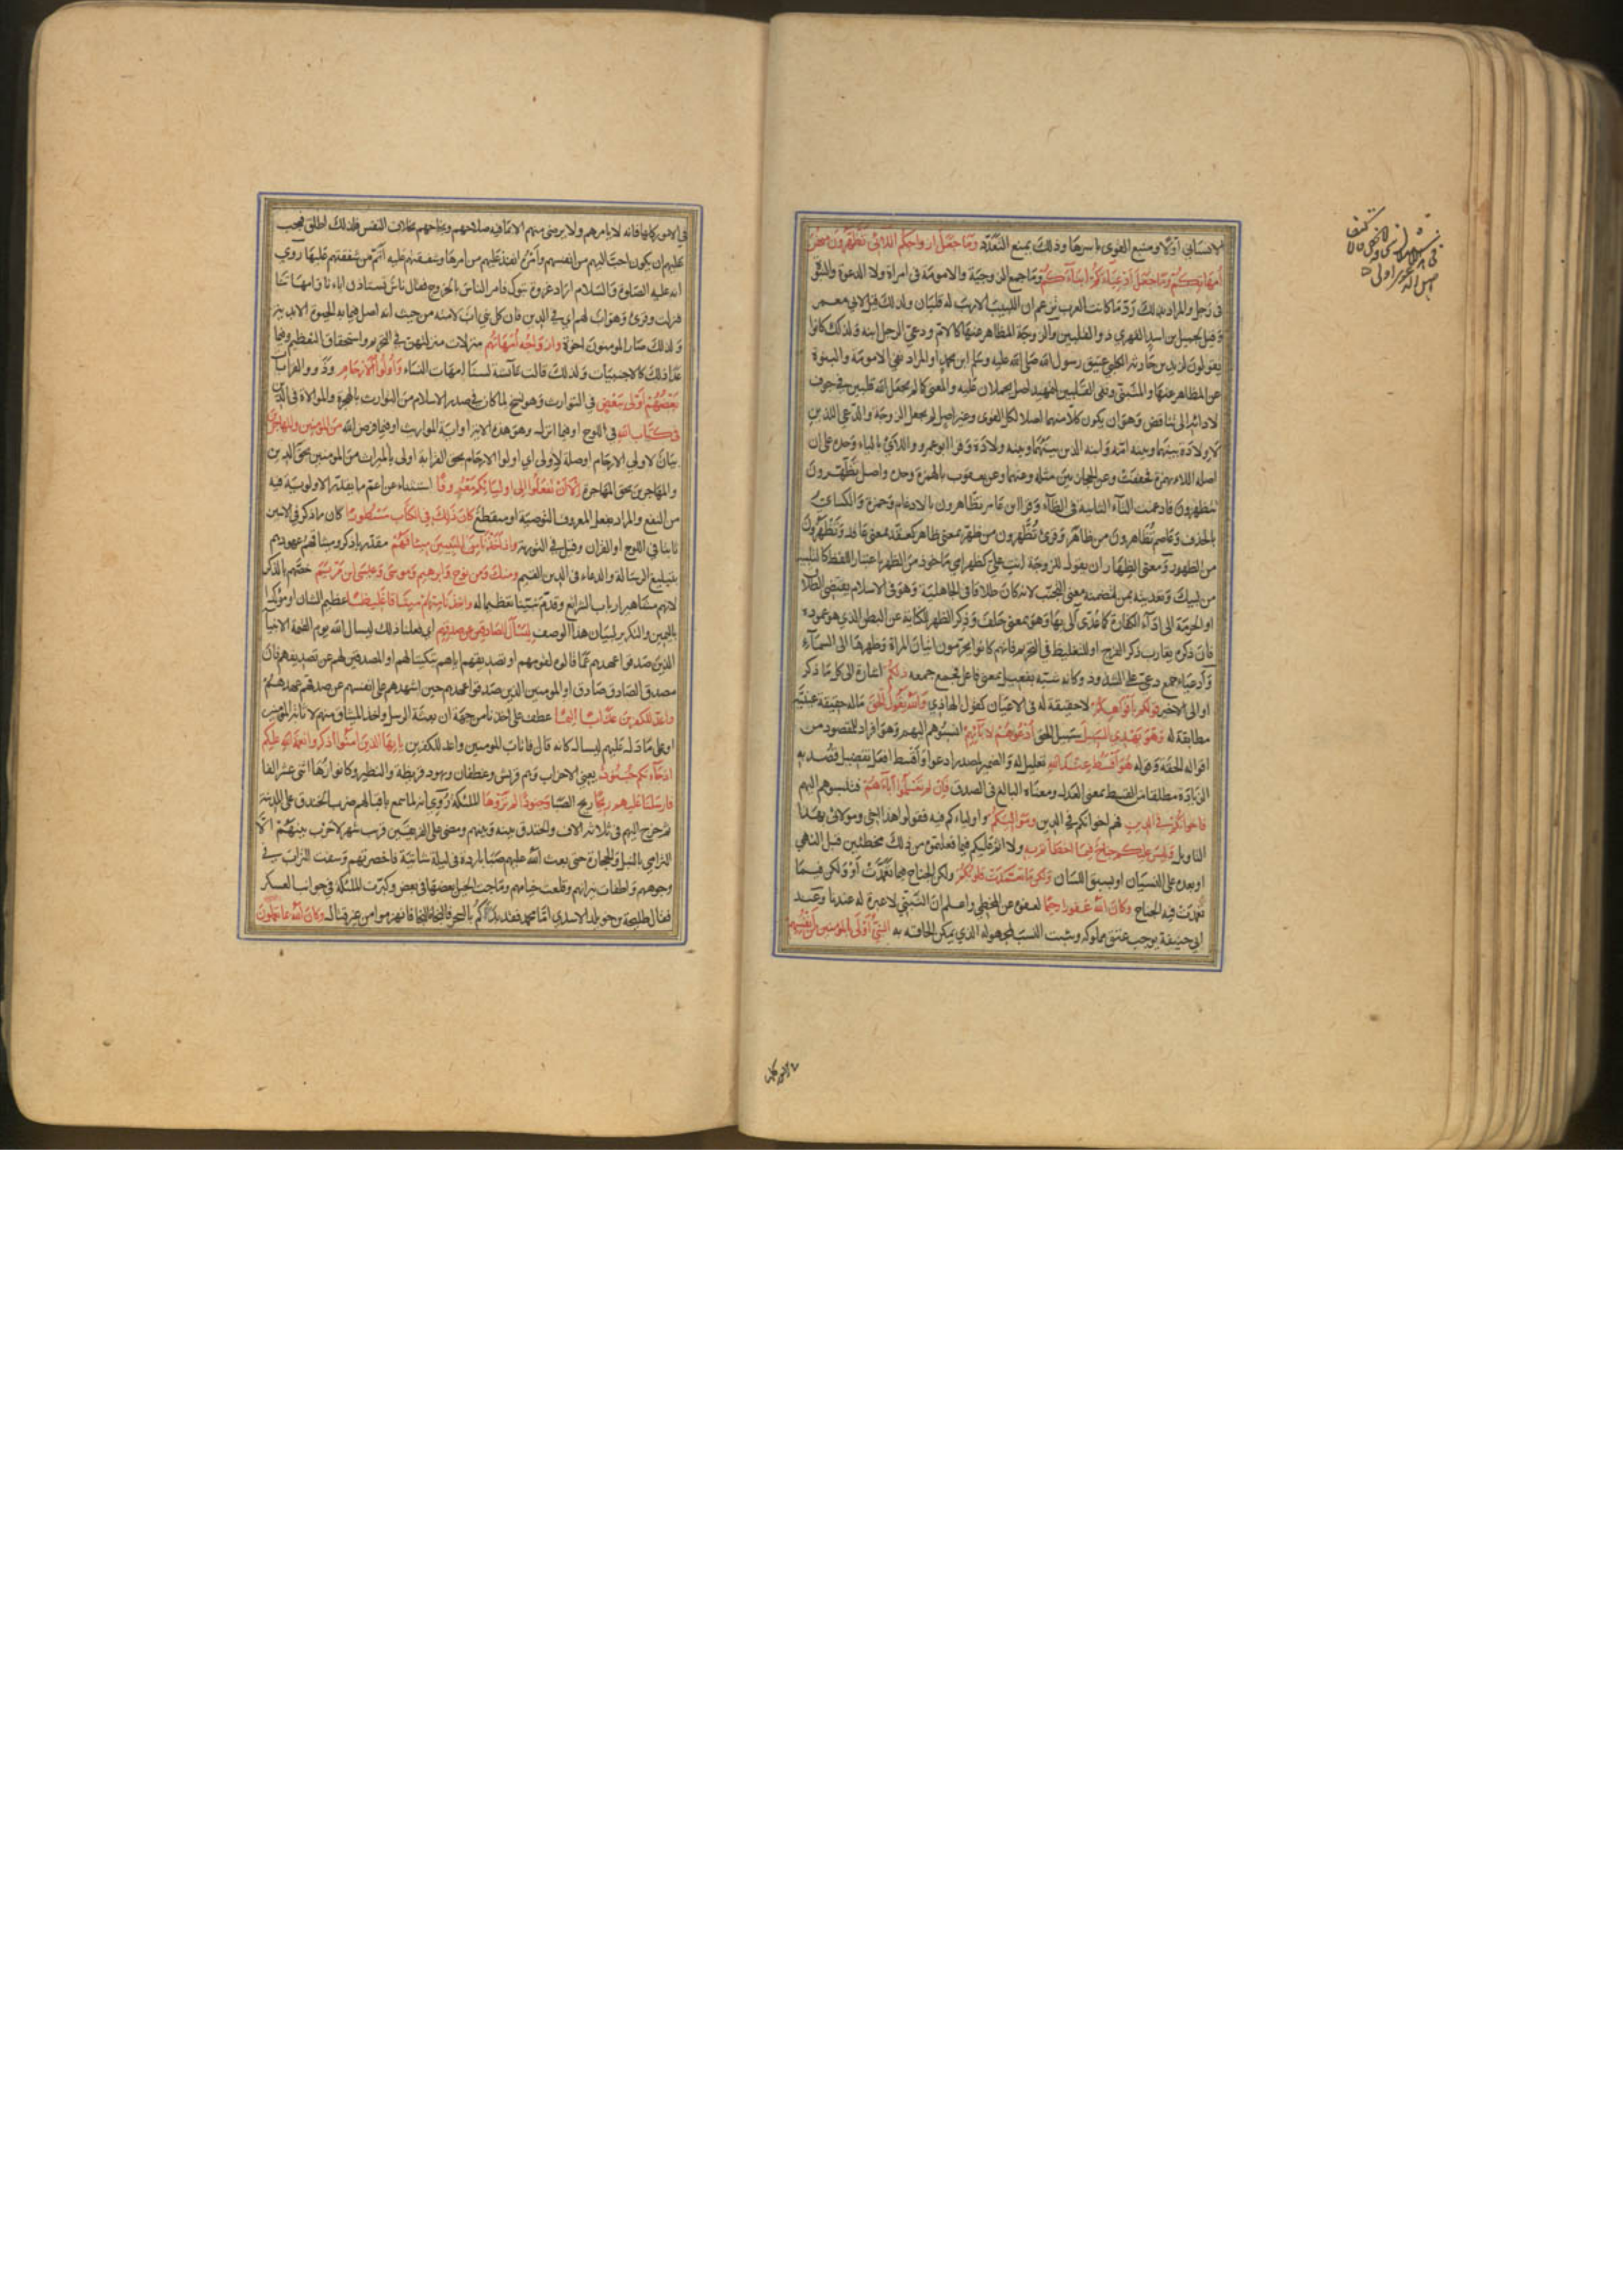 الانساني اولا ومنبع القوى باسرها وذلك يمنع التعدد وما جعل ازواجكم اللائي تظهرون منهن
امهاتكم وما جعل ادعياءكم ابناءكم وما جمع الزوجية والامومة في امراة ولا الدعوة والبنوة
في رجل والمراد بذلك رد ما كانت العرب تزعم ان اللبيب الاريب له قلبان ولذلك قيل لابي معمر
وقيل لجميل بن اسد الفهري ذو القلبين والزوجة المظاهر عنها كالام ودعي الرجل ابنه ولذلك كانوا
يقولون لزيد بن حارثة الكلبي عتيق رسول الله صلى الله عليه وسلم ابن محمد او المراد نفي الامومة والبنوة
عن المظاهر عنها والمتبنى ونفي القلبين لتمهيد اصل يحملان عليه والمعنى كما لم يجعل الله قلبين في جوف
لادائه الى تناقض وهو ان يكون كل منهما اصلا لكل القوى وغير اصل لم يجعل الزوجة والدعي اللذين
لا ولادة بينهما وبينه امه وابنه الذين بينهما وبينه ولادة وقرا ابو عمرو واللاي بالياء وحده على ان
اصله اللاء بهمزة فخففت وعن الحجازيين مثله وعنهما وعن يعقوب بالهمزة وحده واصل تظهرون
تتظهرون فادغمت التاء الثانية في الظاء وقرا ابن عامر تظاهرون بالادغام وحمزة والكسائي
بالحذف وعاصم تظاهرون من ظاهر وقرئ تظهرون من ظهر بمعنى ظاهر كعقد بمعنى عاقد وتظهرون
من الظهور ومعنى الظهار ان يقول للزوجة انت علي كظهر امي ماخوذ من الظهر باعتبار اللفظ كالتلبية
من لبيك وتعديته بمن لتضمنه معنى التجنب لانه كان طلاقا في الجاهلية وهو في الاسلام يقتضي الطلاق
او الحرمة الى اداء الكفارة كما عدي آلى بها وهو بمعنى حلف وذكر الظهر للكناية عن البطن الذي هو عموده
فان ذكره يقارب ذكر الفرج او للتغليظ في التحريم فانهم كانوا يحرمون اتيان المراة وظهرها الى السماء
وادعياء جمع دعي على الشذوذ وكانه شبه بفعيل بمعنى فاعل فجمع جمعه ذلكم اشارة الى كل ما ذكر
او الى الاخير قولكم بافواهكم لا حقيقة له في الاعيان كقول الهاذي والله يقول الحق ما له حقيقة عينية
مطابقة له وهو يهدي السبيل سبيل الحق ادعوهم لابائهم انسبوهم اليهم وهو افراد للمقصود من
اقواله الحقة وقوله هو اقسط عند الله تعليل له والضمير لمصدر ادعوا واقسط افعل تفضيل قصد به
الزيادة مطلقا من القسط بمعنى العدل ومعناه البالغ في الصدق فان لم تعلموا اباءهم فتنسبوهم اليهم
فاخوانكم في الدين فهم اخوانكم في الدين ومواليكم واولياءكم فيه فقولوا هذا اخي ومولاي بهذا
التاويل وليس عليكم جناح فيما اخطاتم به ولا اثم عليكم فيما فعلتموه من ذلك مخطئين قبل النهي
او بعده على النسيان او سبق اللسان ولكن ما تعمدت قلوبكم ولكن الجناح فيما تعمدت او ولكن فيما
تعمدت فيه الجناح وكان الله غفورا رحيما لعفوه عن المخطي واعلم ان التبني لا عبرة له عندنا وعند
ابي حنيفة يوجب عتق مملوكه ويثبت النسب لمجهوله الذي يمكن الحاقه به النبي اولى بالمومنين من انفسهم
في الامور كلها فانه لا يامرهم ولا يرضى منهم الا ما فيه صلاحهم ونجاحهم بخلاف النفس فلذلك اطلق فيجب
عليهم ان يكون احب اليهم من انفسهم وامره انفذ عليهم من امرها وشفقتهم عليه اتم من شفقتهم عليها روي
انه عليه الصلوة والسلام اراد غزوة تبوك فامر الناس بالخروج فقال ناس نستاذن اباءنا وامهاتنا
فنزلت وقرئ وهو اب لهم اي في الدين فان كل نبي اب لامته من حيث انه اصل فيما به الحيوة الابدية
ولذلك صار المومنون اخوة وازواجه امهاتهم منزلات منزلتهن في التحريم واستحقاق التعظيم وفيما
عدا ذلك كالاجنبيات ولذلك قالت عائشة لسنا امهات النساء واولوا الارحام وذوو القرابات
بعضهم اولى ببعض في التوارث وهو نسخ لما كان في صدر الاسلام من التوارث بالهجرة والموالاة في الدين
في كتاب الله في اللوح او فيما انزل وهو هذه الاية او اية المواريث او فيما فرض الله من المومنين والمهاجرين
بيان لاولي الارحام او صلة لاولى اي اولوا الارحام بحق القرابة اولى بالميراث من المومنين بحق الدين
والمهاجرين بحق المهاجرة الا ان تفعلوا الى اوليائكم معروفا استثناء من اعم ما يقدر الاولوية فيه
من النفع والمراد بفعل المعروف التوصية او منقطع كان ذلك في الكتاب مسطورا كان ما ذكر في الايتين
ثابتا في اللوح او القران وقيل في التورية واذ اخذنا من النبيين ميثاقهم مقدر باذكر وميثاقهم عهودهم
بتبليغ الرسالة والدعاء الى الدين القيم ومنك ومن نوح وابرهيم وموسى وعيسى ابن مريم خصهم بالذكر
لانهم مشاهير ارباب الشرائع وقدم نبينا تعظيما له واخذنا منهم ميثاقا غليظا عظيم الشان او موكدا
باليمين والتكرير لبيان هذا الوصف ليسال الصادقين عن صدقهم اي فعلنا ذلك ليسال الله يوم القيمة الانبيا
الذين صدقوا عهدهم عما قالوه لقومهم او تصديقهم اياهم تبكيتا لهم او المصدقين لهم عن تصديقهم فان
مصدق الصادق صادق او المومنين الذين صدقوا عهدهم حين اشهدهم على انفسهم عن صدقهم عهدهم
واعد للكفرين عذابا اليما عطف على اخذنا من جهة ان بعثة الرسل واخذ الميثاق منهم لاثابة المومنين
او على ما دل عليه ليسال كانه قال فاثاب المومنين واعد للكفرين يا ايها الذين امنوا اذكروا نعمة الله عليكم
اذ جاءتكم جنود يعني الاحزاب وهم قريش وغطفان ويهود قريظة والنضير وكانوا زهاء اثني عشر الفا
فارسلنا عليهم ريحا ريح الصبا وجنودا لم تروها الملئكة روي انه لما سمع باقبالهم ضرب الخندق على المدينة
ثم خرج اليهم في ثلاثة الاف والخندق بينه وبينهم ومضى على الفريقين قريب شهر لا حرب بينهم الا
الترامي بالنبل والحجارة حتى بعث الله عليهم صبا باردة في ليلة شاتية فاخصرتهم وسفت التراب في
وجوههم واطفات نيرانهم وقلعت خيامهم وماجت الخيل بعضها في بعض وكبرت الملئكة في جوانب العسكر
فقال طليحة بن خويلد الاسدي اما محمد فقد بداكم بالسحر فالنجا النجا فانهزموا من غير قتال وكان الله بما تعملون